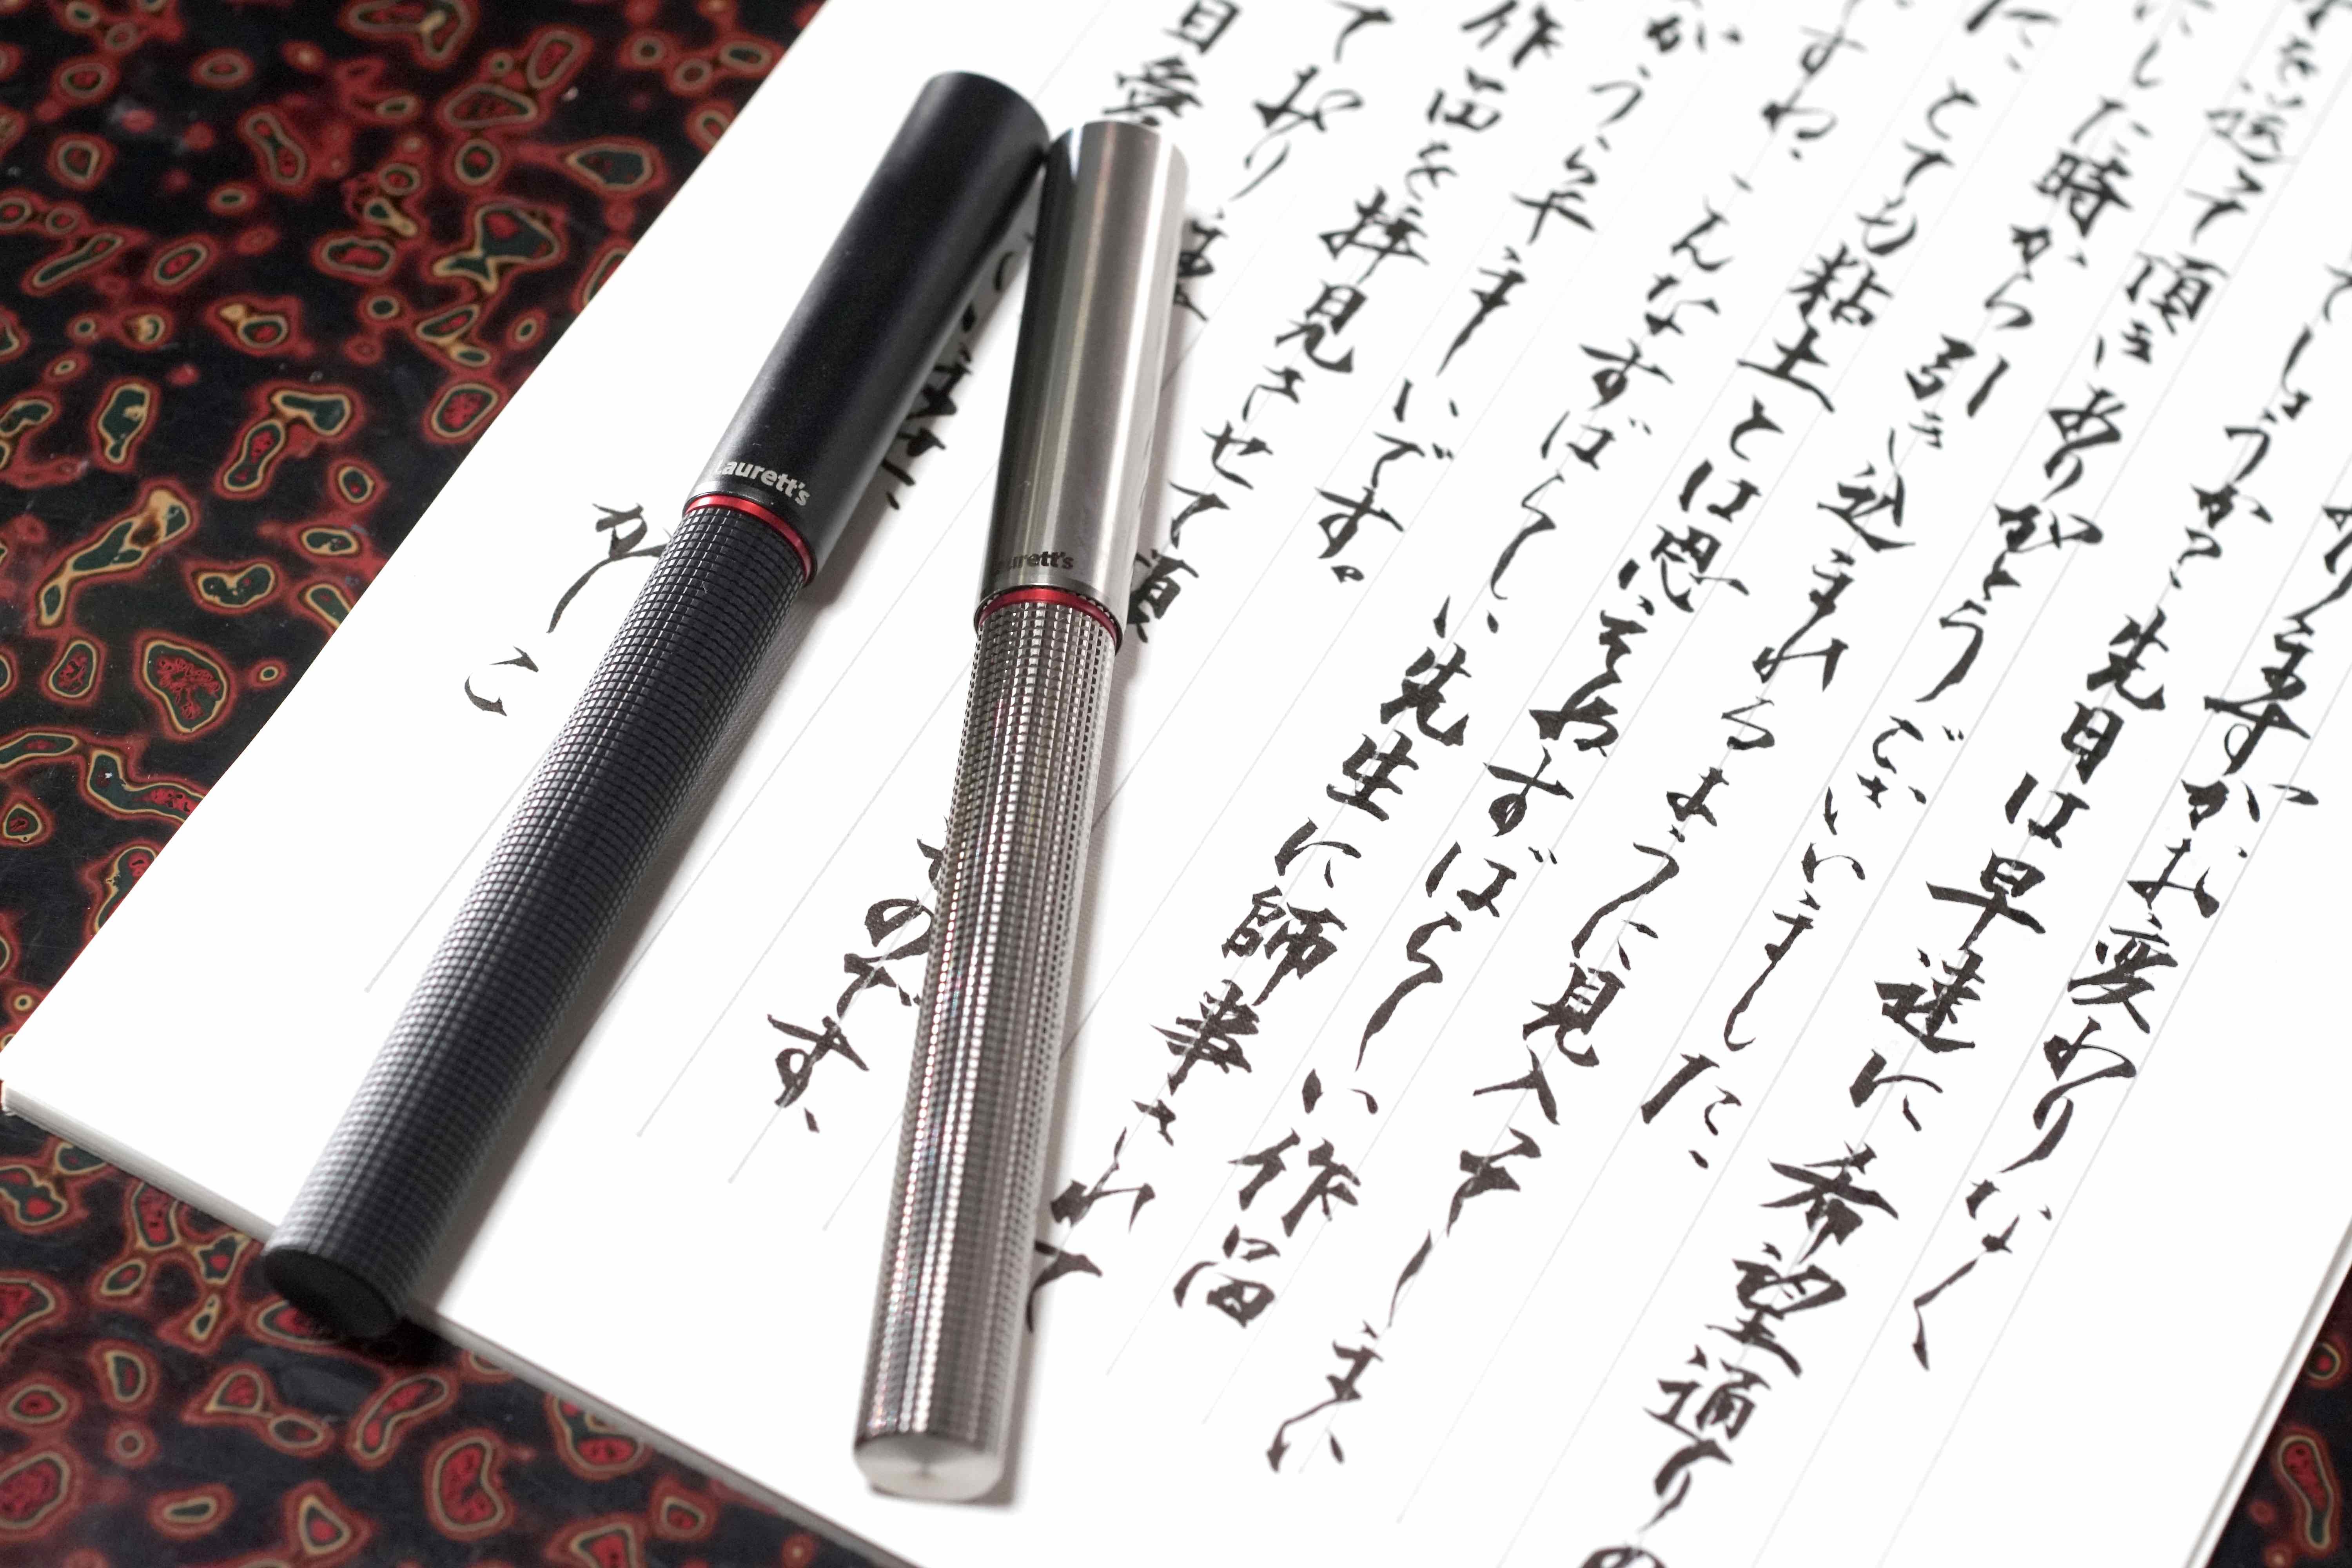 りますがお変わりなく
でしょうか、先日は早速に希望通りの
を送て頂きありがとうございました、
にした時から引き込まれるように見入てしまい
た、とても粘土とは思えぬすばらしい作品
すね、こんなすばらしい先生に師事されて
がうら ましいです。
作品を拝見させて頂
ており のです、
自愛
かしこ
Laurett's
urett's